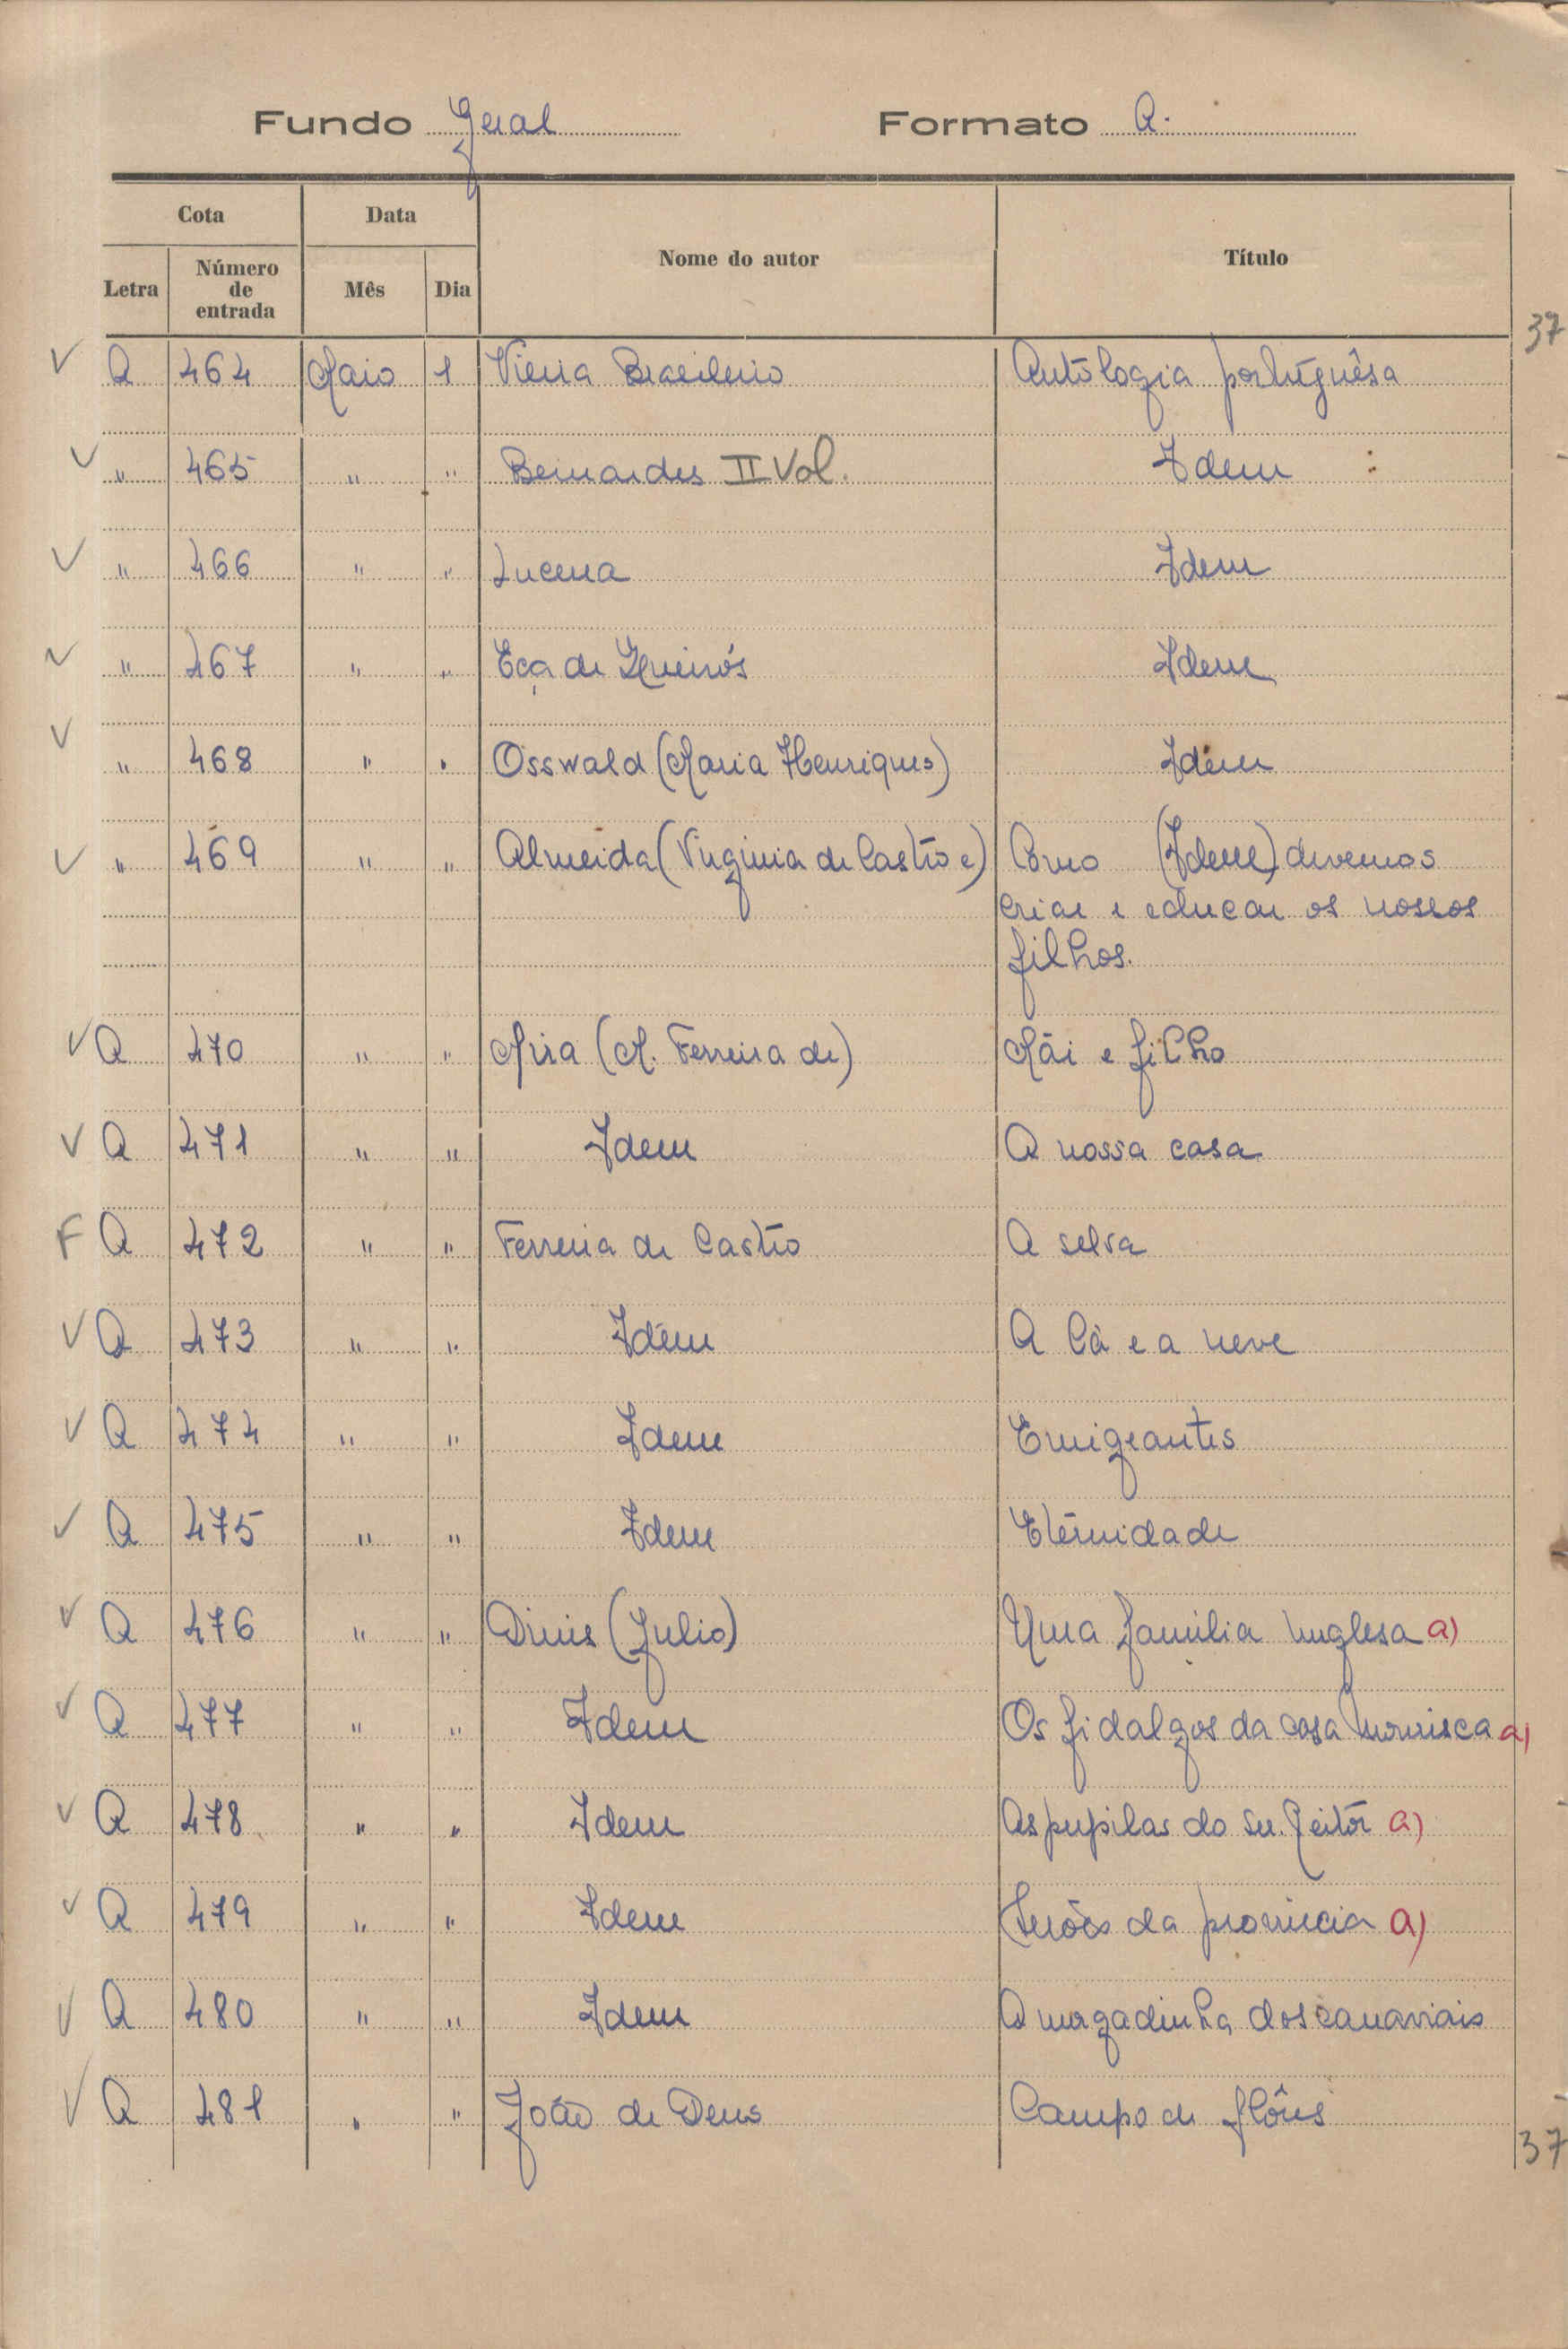 Fundo Geral Formato A.
Cota Data Nome do autor Título
Letra Número de entrada Mês Dia
37
V A 464 Maio 1 Vieira Brasileiro Antologia portuguêsa
V " 465 " " Bernardes II Vol. Idem :
V " 466 " " Lucena Idem
V " 467 " " Eça de Queirós Idem
V " 468 " " Osswald (Maria Henriques) Idem
V " 469 " " Almeida (Virginia de Castro e) Como (Idem) devemos
criar e educar os nossos
filhos.
V A 470 " " Mira (M. Ferreira de) Mãi e filho
V A 471 " " Idem A nossa casa
F A 472 " " Ferreira de Castro A selva
V A 473 " " Idem A lã e a neve
V A 474 " " Idem Emigrantes
V A 475 " " Idem Eternidade
V A 476 " " Dinis (Julio) Uma familia inglesa a)
V A 477 " " Idem Os fidalgos da casa mourisca a)
V A 478 " " Idem As pupilas do Sr. Reitor a)
V A 479 " " Idem Serões da provincia a)
V A 480 " " Idem A morgadinha dos canaviais
V A 481 " " João de Deus Campo de flôres
37